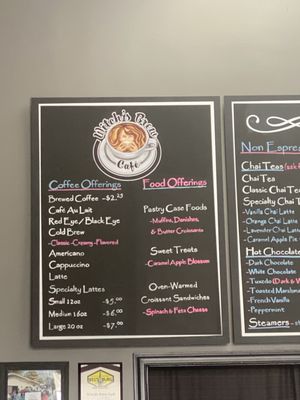 Witch's Brew
Cafe
Coffee Offerings
Brewed Coffee -$2.25
Café Au Lait
Red Eye/ Black Eye
Cold Brew
-Classic -Creamy -Flavored
Americano
Cappuccino
Latte
Specialty Lattes
Small 12oz -$5.00
Medium 16oz -$6.00
Large 20 oz -$7.00
Food Offerings
Pastry Case Foods
-Muffins, Danishes,
& Butter Croissants
Sweet Treats
-Caramel Apple Blossom
Oven-Warmed
Croissant Sandwiches
-Spinach & Feta Cheese
Non Espre
Chai Teas
Chai Tea
Classic Chai Te
Specialty Chai T
-Vanilla Chai Latte
-Orange Chai Latte
-Lavender Chai Latt
-Caramel Apple Pie
Hot Chocolate
-Dark Chocolate
-White Chocolate
-Tuxedo (Dark & W
-Toasted Marshma
-French Vanilla
-Peppermint
Steamers